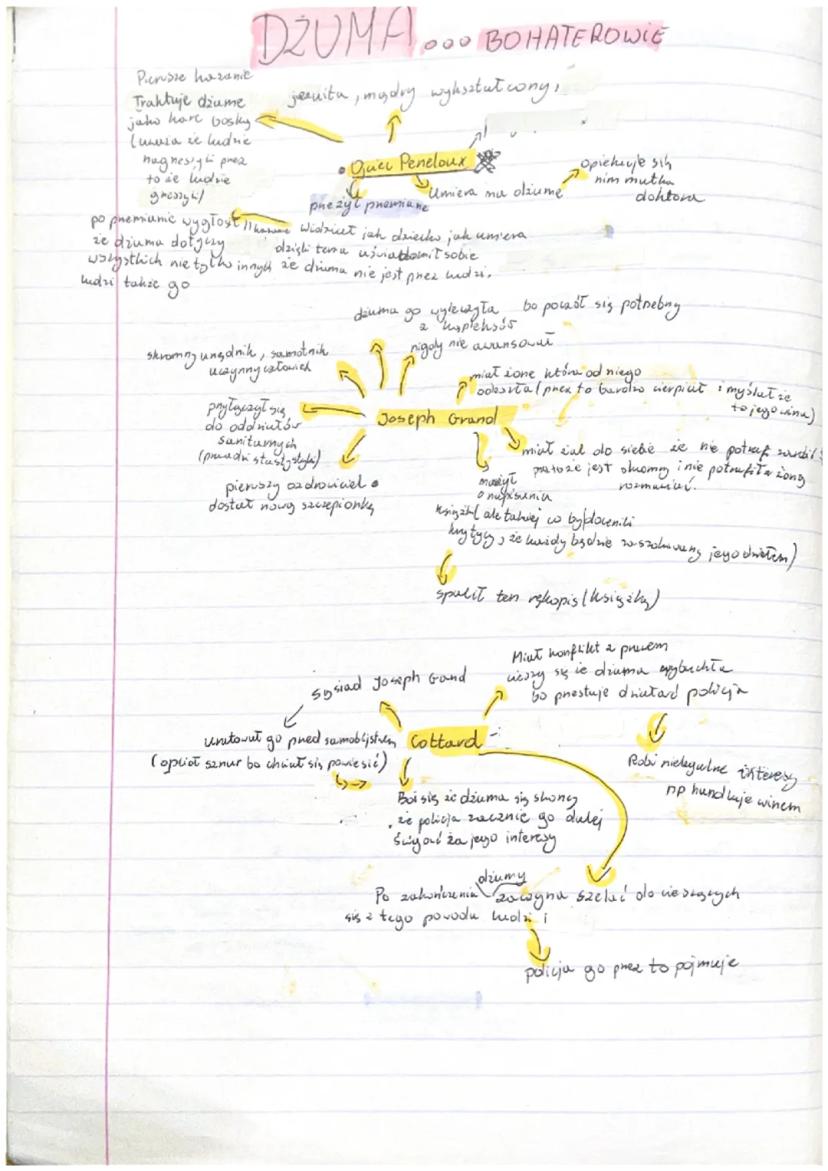 DŻUMA ... BOHATEROWIE
Pierwsze kazanie
Traktuje dżume
jako karę boską
(uważa że ludzie
nagrzeszyli przez
to że ludzie
grzeszyli)
jezuita, mądry wykształcony,
Ojciec Peneloux
opiekuje się
nim matka
doktora
Umiera na dżumę
przeżył przemianę
po przemianie wygłosił II kazanie
że dżuma dotyczy
wszystkich nie tylko innych
ludzi także go
widział jak dziecko jak umiera
dzięki temu uświadomił sobie
że dżuma nie jest przez ludzi.
dżuma go wyleczyła bo poczół się potrzebny
z kompleksów
nigdy nie awansował
skromny urzędnik, samotnik
uczynny człowiek
miał żone która od niego
odeszła (przez to bardzo cierpiał i myślał że
to jego wina)
Joseph Grand
przyłączył się
do oddziałów
sanitarnych
(prowadzi statystyki)
miał żal do siebie że nie potrafi
jest skromny i nie potrafił z żoną
rozmawiać.
pierwszy ozdrowiciel
dostał nową szczepionkę
marzył
o napisaniu
książki (ale takiej co by docenili
krytycy, że każdy będzie zaszokowany jego dziełem)
spalił ten rękopis (książkę)
Miał konflikt z prawem
cieszy się że dżuma wybuchła
bo przestaje działać policja
sąsiad Joseph Gand
Cottard
uratował go przed samobójstwem
(opciął sznur bo chciał się powiesić)
Robi nielegalne interesy
np handluje winem
Boi się że dżuma się skończy
że policja zacznie go dalej
ścigać za jego interesy
dżumy
Po zakończenia zaczyna szelać do cieszących
się z tego powodu ludzi i
policja go przez to pojmuje